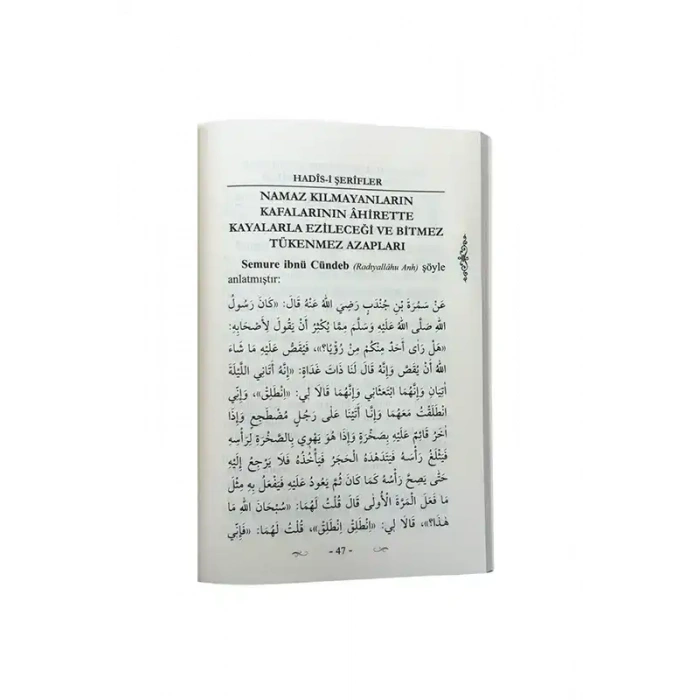 HADÎS-İ ŞERİFLER
NAMAZ KILMAYANLARIN
KAFALARININ ÂHİRETTE
KAYALARLA EZİLECEĞİ VE BİTMEZ
TÜKENMEZ AZAPLARI
Semure ibnü Cündeb (Radıyallâhu Anh) şöyle
anlatmıştır:
عَنْ سَمُرَةَ بْنِ جُنْدَبٍ رَضِيَ اللهُ عَنْهُ قَالَ: «كَانَ رَسُولُ
اللهِ صَلَّى اللهُ عَلَيْهِ وَسَلَّمَ مِمَّا يُكْثِرُ أَنْ يَقُولَ لِأَصْحَابِهِ:
«هَلْ رَاٰى أَحَدٌ مِنْكُمْ مِنْ رُؤْيَا؟»، فَيَقُصُّ عَلَيْهِ مَا شَاءَ
اللهُ أَنْ يَقُصَّ وَإِنَّهُ قَالَ لَنَا ذَاتَ غَدَاةٍ: «إِنَّهُ أَتَانِي اللَّيْلَةَ
اٰتِيَانِ وَإِنَّهُمَا ابْتَعَثَانِي وَإِنَّهُمَا قَالَا لِي: «اِنْطَلِقْ»، وَإِنِّي
انْطَلَقْتُ مَعَهُمَا وَإِنَّا أَتَيْنَا عَلٰى رَجُلٍ مُضْطَجِعٍ وَإِذَا
اٰخَرُ قَائِمٌ عَلَيْهِ بِصَخْرَةٍ وَإِذَا هُوَ يَهْوِي بِالصَّخْرَةِ لِرَأْسِهِ
فَيَثْلَغُ رَأْسَهُ فَيَتَدَهْدَهُ الْحَجَرُ فَيَأْخُذُهُ فَلَا يَرْجِعُ إِلَيْهِ
حَتّٰى يَصِحَّ رَأْسُهُ كَمَا كَانَ ثُمَّ يَعُودُ عَلَيْهِ فَيَفْعَلُ بِهِ مِثْلَ
مَا فَعَلَ الْمَرَّةَ الْأُولٰى قَالَ قُلْتُ لَهُمَا: «سُبْحَانَ اللهِ مَا
هٰذَا؟»، قَالَا لِي: «اِنْطَلِقْ اِنْطَلِقْ»، قُلْتُ لَهُمَا: «فَإِنِّي
- 47 -